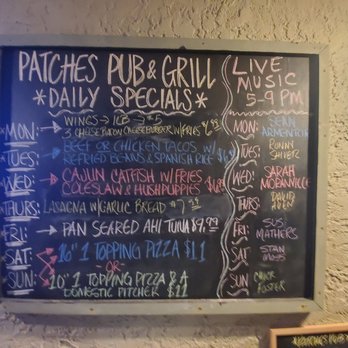 PATCHES PUB & GRILL
*DAILY SPECIALS*
MON: WINGS
3 CHEESE BACON CHEESEBURGER W/ FRIES
TUES: BEEF OR CHICKEN TACOS W/
REFRIED BEANS & SPANISH RICE
WED: CAJUN CATFISH W/ FRIES
COLESLAW & HUSHPUPPIES
THURS: LASAGNA W/ GARLIC BREAD
FRI: PAN SEARED AHI TUNA $9.99
SAT: 16" 1 TOPPING PIZZA $11
OR
SUN: 10" 1 TOPPING PIZZA & A
DOMESTIC PITCHER $11
LIVE
MUSIC
5-9 PM
MON: SEAN
ARMENTOR
TUES: RONNY
WED: SARAH
THURS: DAVID
FRI: SUSI
MATHERS
SAT: STAN
SUN: CHUCK
FOSTER